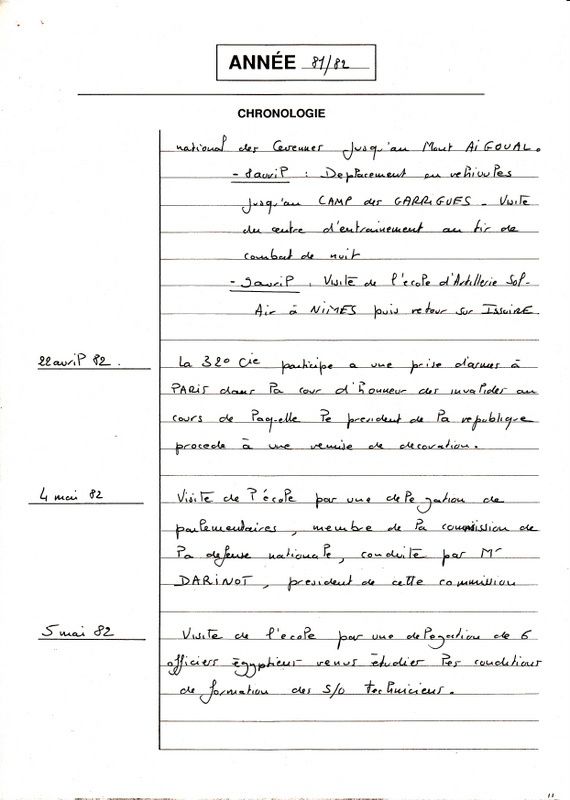 ANNÉE 81/82
CHRONOLOGIE
national des Cevennes jusqu'au Mont AiGOUAL.
- 8 avril : Deplacement en vehicules
jusqu'au CAMP des GARRIGUES - Visite
du centre d'entrainement au tir de
combat de nuit
- 9 avril : Visite de l'école d'Artillerie Sol-
Air à NiMES puis retour sur ISSOIRE.
22 avril 82. La 32° Cie participe a une prise d'armes à
PARIS dans la cour d'honneur des invalides au
cours de laquelle le president de la republique
procede à une remise de decoration.
4 mai 82 Visite de l'école par une delegation de
parlementaires, membre de la commission de
la defense nationale, conduite par Mr
DARINOT, president de cette commission
5 mai 82 Visite de l'ecole par une delegation de 6
officiers égyptiens venus étudier les conditions
de formation des S/O techniciens.